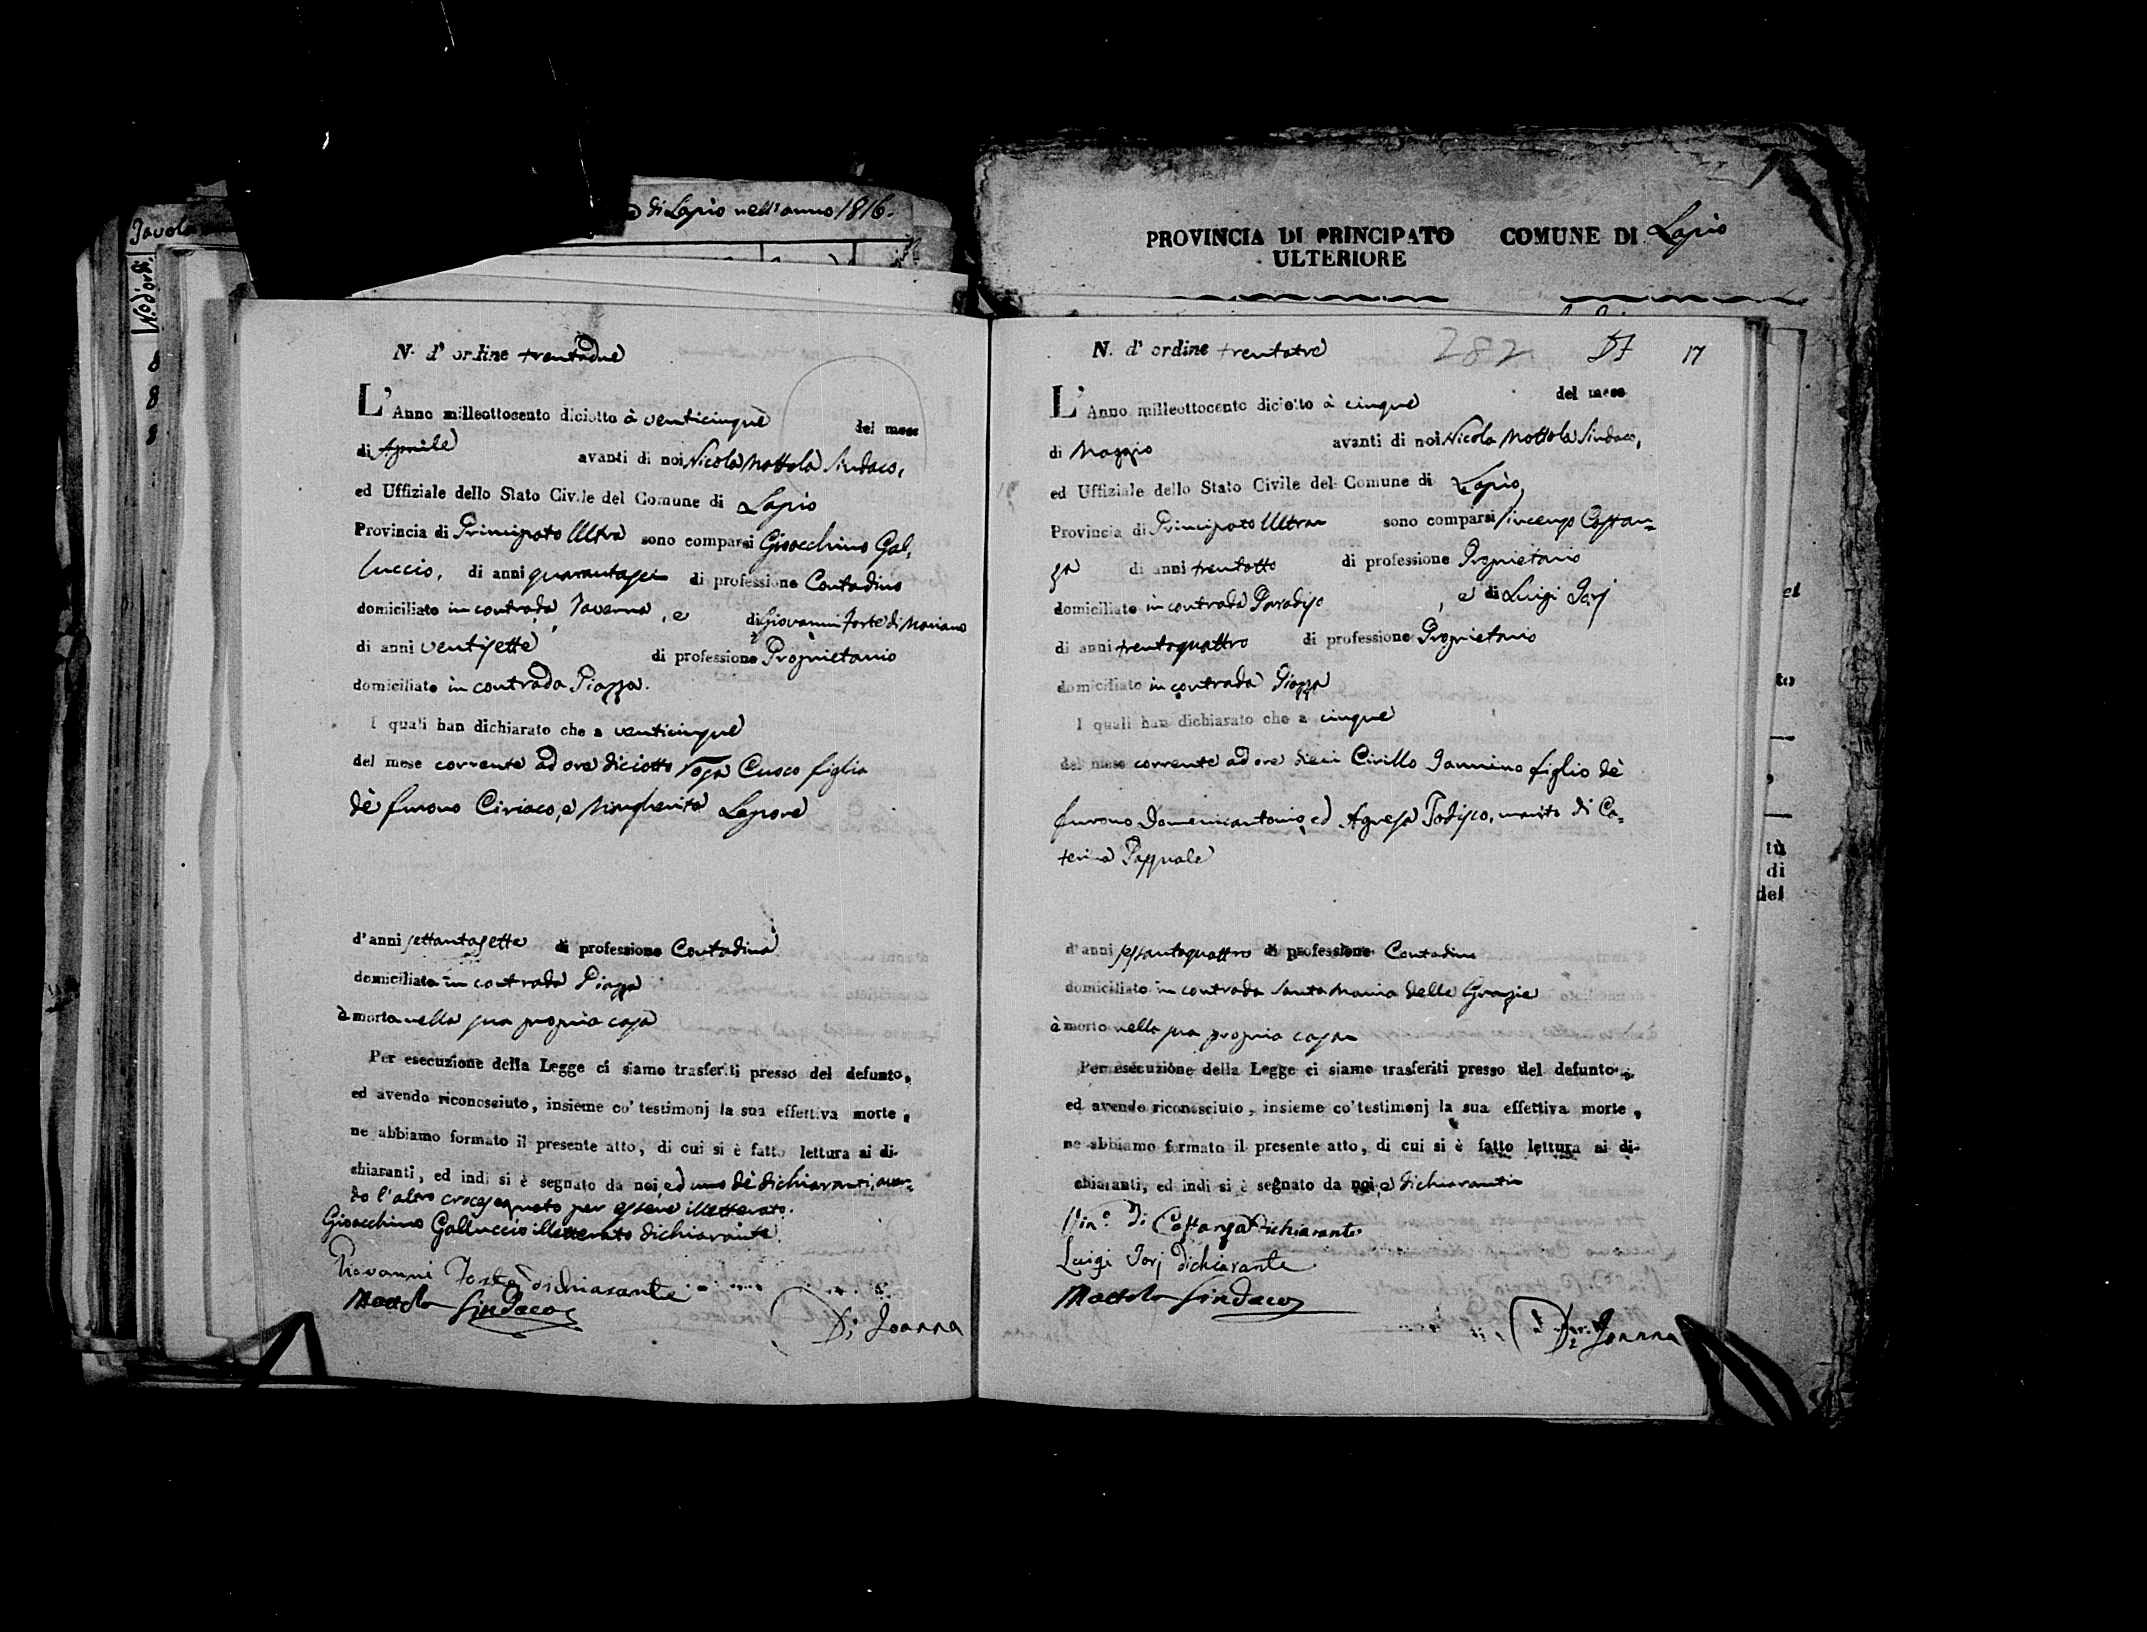 Tavola
di Lapio nell'anno 1816.
N.o d'ordi.
8
8
8
PROVINCIA DI PRINCIPATO COMUNE DI Lapio
ULTERIORE
N. d' ordine trentadue
L'Anno milleottocento diciotto à venticinque del mese
di Aprile avanti di noi Nicola Mottola Sindaco,
ed Uffiziale dello Stato Civile del Comune di Lapio
Provincia di Principato Ultra sono comparsi Gioacchino Gal,
luccio, di anni quarantasei di professione Contadino
domiciliato in contrada Taverna, e di Giovanni Forte di Mariano
di anni ventisette di professione Proprietario
domiciliato in contrada Piazza.
I quali han dichiarato che a venticinque
del mese corrente ad ore diciotto Rosa Cuoco figlia
dè furono Ciriaco, e Margherita Lepore
d'anni settantasette di professione Contadina
domiciliato in contrada Piazza
è morto nella sua propria casa
Per esecuzione della Legge ci siamo trasferiti presso del defunto,
ed avendo riconosciuto, insieme co' testimonj la sua effettiva morte,
ne abbiamo formato il presente atto, di cui si è fatto lettura ai di-
chiaranti, ed indi si è segnato da noi, ed uno dè dichiaranti, aven=
do l'altro crocesegnato per essere illetterato.
Gioacchino Galluccio illetterato dichiarante.
Giovanni Forte dichiarante
Mottola Sindaco
Di Joanna
N. d' ordine trentatre 282 17
L'Anno milleottocento diciotto à cinque del mese
di Maggio avanti di noi Nicola Mottola Sindaco,
ed Uffiziale dello Stato Civile del Comune di Lapio
Provincia di Principato Ultra sono comparsi Vincenzo Costan=
za di anni trentotto di professione Proprietario
domiciliato in contrada Paradiso, e di Luigi Jorj
di anni trentaquattro di professione Proprietario
domiciliato in contrada Piazza
I quali han dichiarato che a cinque
del mese corrente ad ore dieci Cirillo Jannino figlio dè
furono Domenicantonio, ed Agnesa Todisco, marito di Ca=
terina Pasquale
d'anni sessantaquattro di professione Contadino
domiciliato in contrada Santa Maria delle Grazie
è morto nella sua propria casa
Per esecuzione della Legge ci siamo trasferiti presso del defunto,
ed avendo riconosciuto, insieme co' testimonj la sua effettiva morte,
ne abbiamo formato il presente atto, di cui si è fatto lettura ai di-
chiaranti, ed indi si è segnato da noi, e dichiaranti
Vin.o di Costanza Dichiarante
Luigi Jorj dichiarante
Mottola Sindaco
Di Joanna
to
tù
di
del